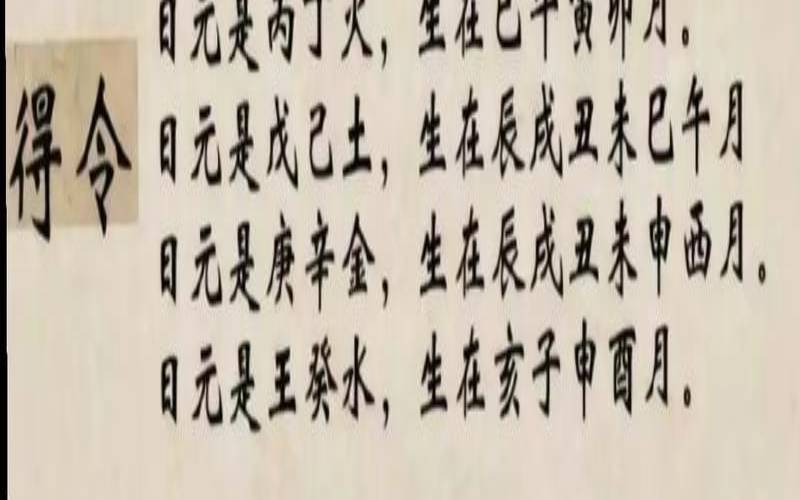 得令
日元是丙丁火，生在巳午寅卯月。
日元是戊己土，生在辰戌丑未巳午月
日元是庚辛金，生在辰戌丑未申西月。
日元是王癸水，生在亥子申酉月。